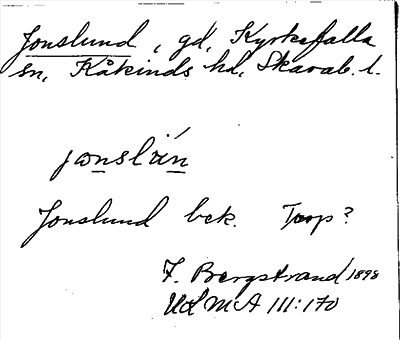 Jonslund, gd, Kyrkefalla
sn, Kåkinds hd, Skarab. l.
Jonslund bek. Torp?
F. Bergstrand 1898
ULMA 111:170